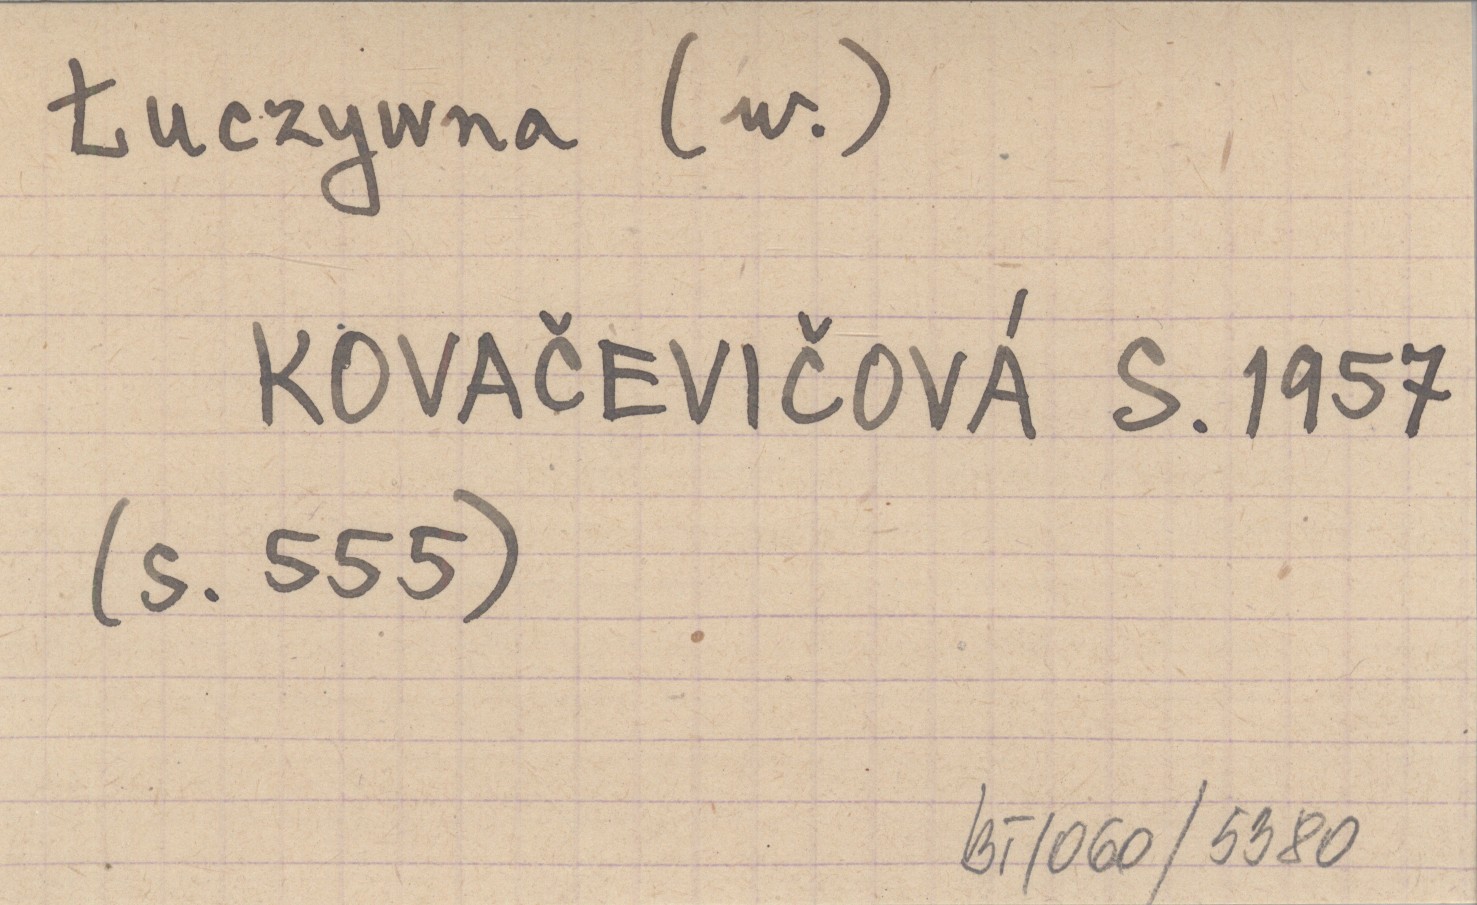 Łuczywna (w.)
KOVAČEVIČOVÁ S. 1957
(s. 555)
BT/060/5380